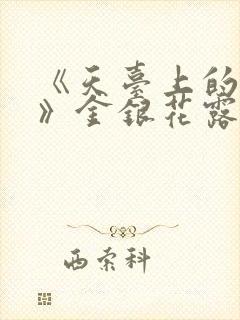 《天臺上的
》金銀花露
西索科